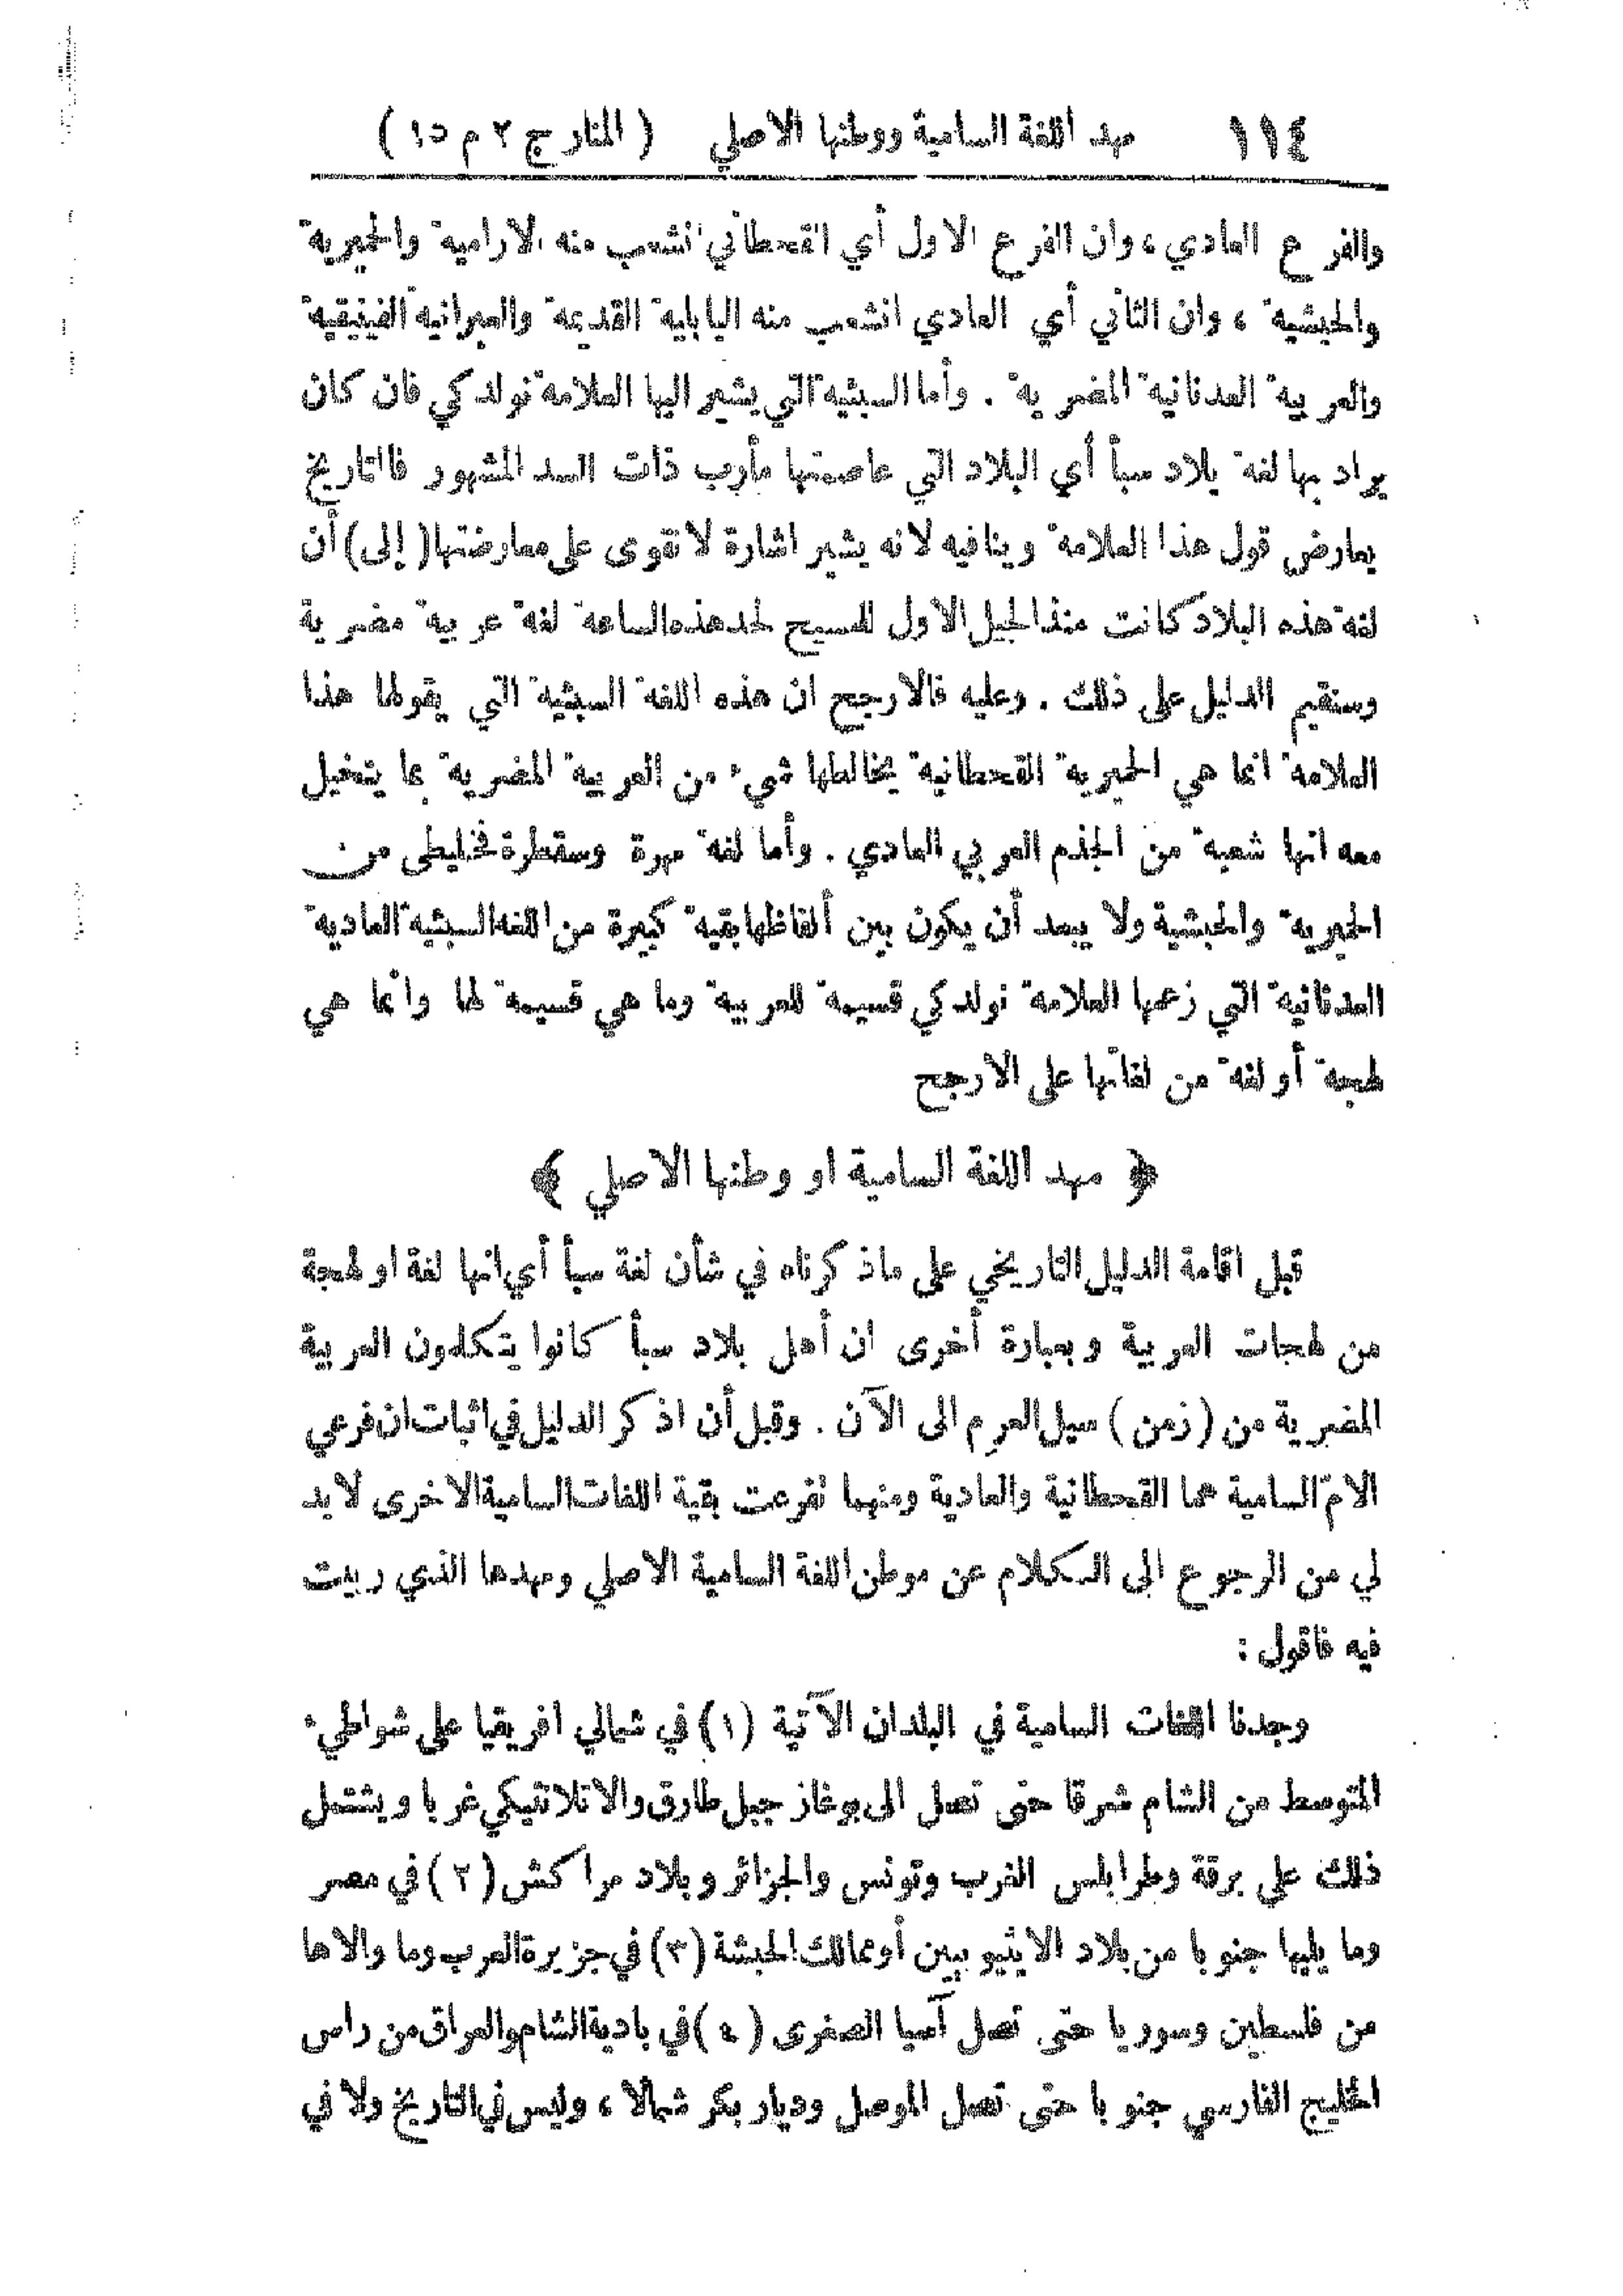 ١١٤ مهد اللغة السامية ووطنها الاصلي ( المنار ج ٢ م ١٥ )
والفرع العادي ، وان الفرع الاول أي القحطاني انشعب منه الارامية والحميرية
والحبشية ، وان الثاني أي العادي انشعب منه البابلية القديمة والعبرانية الفينيقية
والعربية العدنانية المضرية . وأما السبئية التي يشير اليها العلامة نولدكي فان كان
يراد بها لغة بلاد سبأ أي البلاد التي عاصمتها مأرب ذات السد المشهور فالتاريخ
يعارض قول هذا العلامة وينافيه لانه يشير اشارة لا تقوى على معارضتها ( إلى ) أن
لغة هذه البلاد كانت منذ الجيل الاول للمسيح لحد هذه الساعة لغة عربية مضرية
وسنقيم الدليل على ذلك . وعليه فالارجح ان هذه اللغة السبئية التي يقولها هذا
العلامة انما هي الحميرية القحطانية يخالطها شيء من العربية المضرية بما يتخيل
معه انها شعبة من الجذم العربي العادي . وأما لغة مهرة وسقطرة فخليطى من
الحميرية والحبشية ولا يبعد أن يكون بين ألفاظها بقية كبيرة من اللغة السبئية العادية
العدنانية التي زعمها العلامة نولدكي قسيمة للعربية وما هي قسيمة لها وانما هي
لهجة أو لغة من لغاتها على الارجح
﴿ مهد اللغة السامية او وطنها الاصلي ﴾
قبل اقامة الدليل التاريخي على ما ذكرناه في شأن لغة سبأ أي انها لغة او لهجة
من لهجات العربية وبعبارة أخرى ان أهل بلاد سبأ كانوا يتكلمون العربية
المضرية من ( زمن ) سيل العرِم الى الآن . وقبل أن اذكر الدليل في اثبات ان فرعي
الامّ السامية هما القحطانية والعادية ومنهما تفرعت بقية اللغات السامية الاخرى لا بد
لي من الرجوع الى الكلام عن موطن اللغة السامية الاصلي ومهدها الذي ربيت
فيه فاقول :
وجدنا اللغات السامية في البلدان الآتية (١) في شمالي افريقيا على شواطيء
المتوسط من الشام شرقا حتى تصل الى بوغاز جبل طارق والاتلانتيكي غربا ويشتمل
ذلك على برقة وطرابلس الغرب وتونس والجزائر وبلاد مراكش (٢) في مصر
وما يليها جنوبا من بلاد الاثيوبيين أو ممالك الحبشة (٣) في جزيرة العرب وما والاها
من فلسطين وسوريا حتى تصل آسيا الصغرى (٤) في بادية الشام والعراق من راس
الخليج الفارسي جنوبا حتى تصل الموصل وديار بكر شمالا ، وليس في التاريخ ولا في